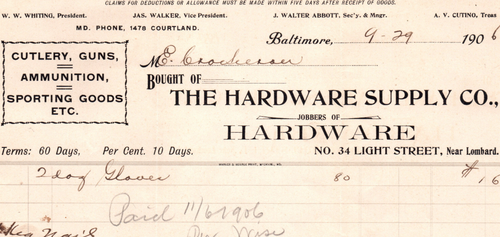 CLAIMS FOR DEDUCTIONS OR ALLOWANCE MUST BE MADE WITHIN FIVE DAYS AFTER RECEIPT OF GOODS.
W. W. WHITING, President. JAS. WALKER, Vice President. J. WALTER ABBOTT, Sec'y. & Mngr. A. V. CUTINO, Treas
MD. PHONE, 1478 COURTLAND.
Baltimore, 9-29 1906
CUTLERY, GUNS,
AMMUNITION,
SPORTING GOODS
ETC.
M E. Crockeron
BOUGHT OF
THE HARDWARE SUPPLY CO.,
JOBBERS OF
HARDWARE
Terms: 60 Days, Per Cent. 10 Days. NO. 34 LIGHT STREET, Near Lombard.
2 doz Gloves 80 $ 16
Paid 11/6 1906
Keg Nails